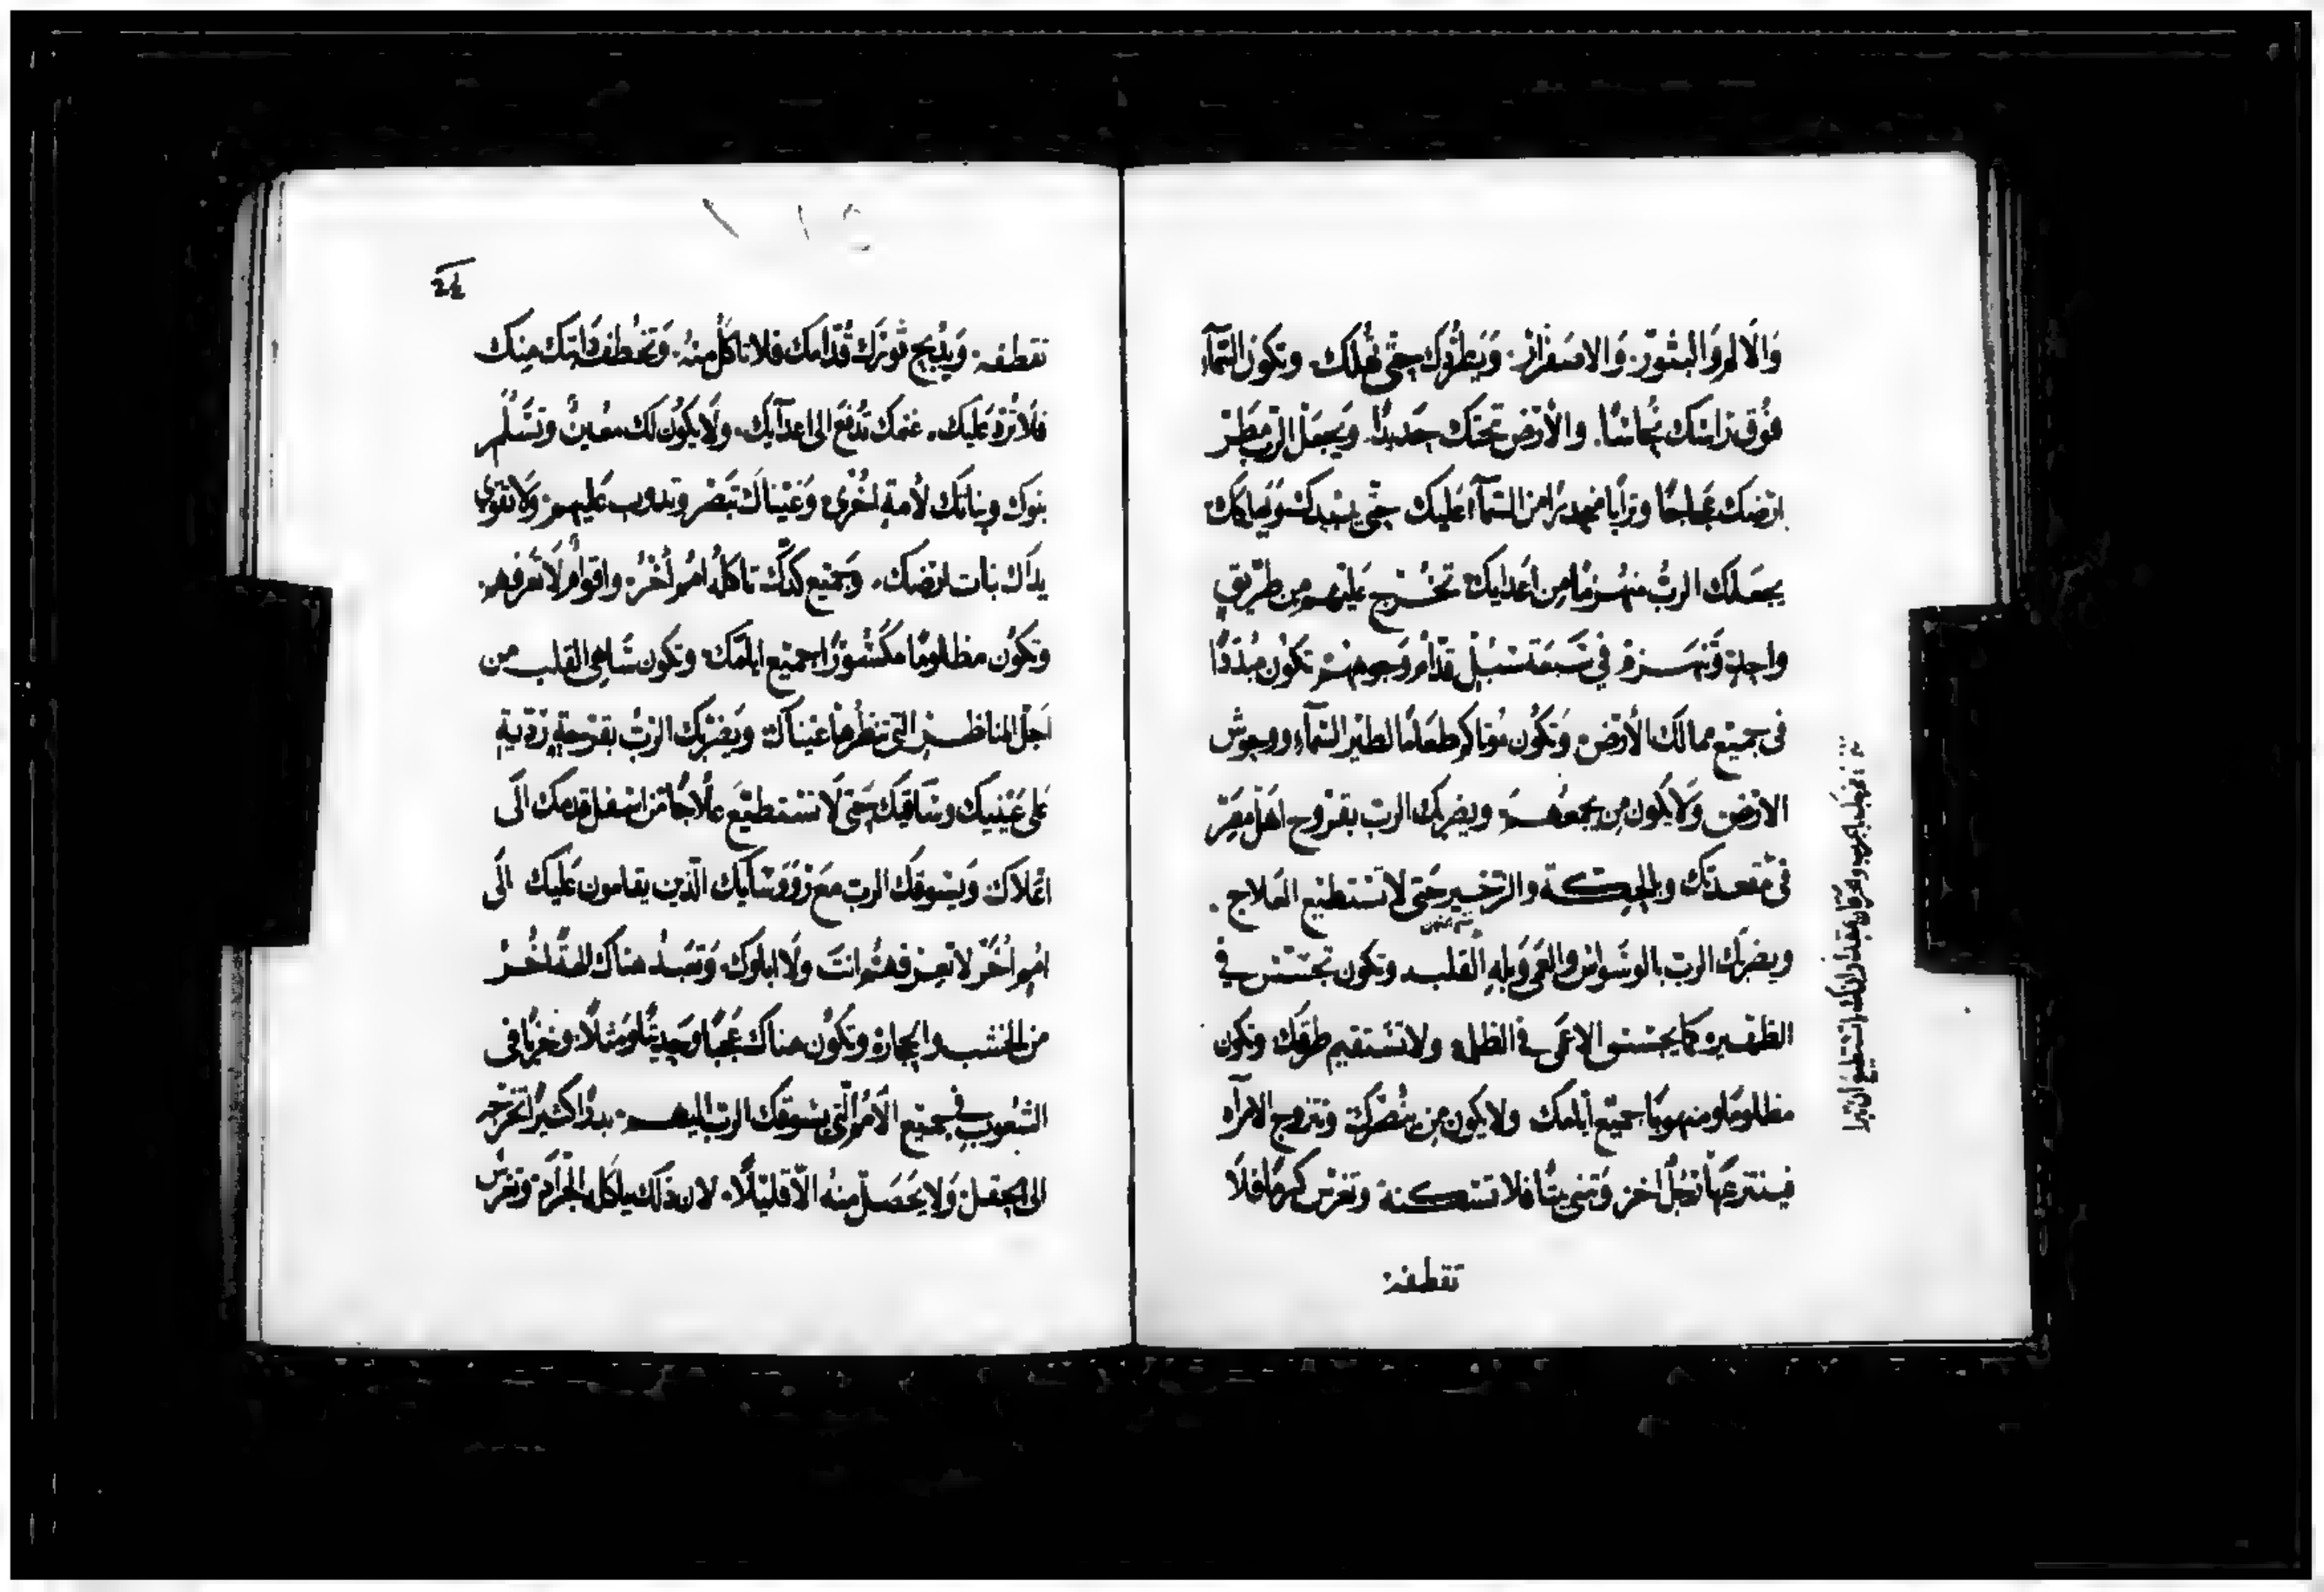 والالم والبثور. والاصفرار. ويطردك حتى تهلك. وتكون السماء
فوق راسك نحاسًا. والأرض تحتك حديدًا. ويجعل الرب مطر
ارضك عجاجًا وترابا منحدرا من السماء عليك حتى يبيدك
يجعلك الرب منهزمًا من اعدايك تخرج عليهم من طريق
واحدة وتنهزم في سبعة سبل قدام وجوههم تكون مبددًا
في جميع ممالك الأرض. وتكون موتاكم طعامًا لطير السماء ووحوش
الارض ولا يكون من يجمعهم ويضربك الرب بقروح اهل مصر
في مقعدتك وبالحكة والزحير حتى لا تستطيع العلاج.
ويضربك الرب بالوسواس والعمى وبله القلب وتكون تجسس في
الظهيرة كما يجسس الاعمى في الظلمة ولا تستقيم طرقك وتكون
مظلومًا ومنهوبًا جميع أيامك ولا يكون من ينصرك وتتزوج الامراه
فينتزعها رجل اخر وتبني بيتًا فلا تسكنه وتغرس كرمًا فلا
تقطفه
تقطفه. ويذبح ثورك قدامك فلا تاكل منه. وتخطف دابتك منك
فلا ترد عليك. غنمك تدفع الى اعدآيك. ولا يكون لك معين وتسلم
بنوك وبناتك لأمة اخرى وعيناك تبصر وتذوب عليهم ولا تقوى
يداك نبات ارضك. وجميع كدك تاكله امم أخر. واقوام لا تعرفهم.
وتكون مظلومًا مكسورًا جميع ايامك وتكون ساهي القلب من
اجل المناظر التي تنظرها عيناك ويضربك الرب بقرحة ردية
على عينيك وساقيك حتى لا تستطيع علاجًا من اسفل قدمك الى
اعلاك ويسوقك الرب مع روسايك الذين يقامون عليك الى
امم أخر لا تعرفهم انت ولا اباوك. وتعبد هناك الهة اخر
من الخشب والحجارة وتكون هناك عجبًا وحديثًا ومثلًا. وخزيا في
الشعوب في جميع الأمم التي يسوقك الرب اليهم. بذرا كثيرًا تخرجه
الى الحقل ولا يحصل منه الا قليلًا. لان ذلك ياكله الجراد وتغرس